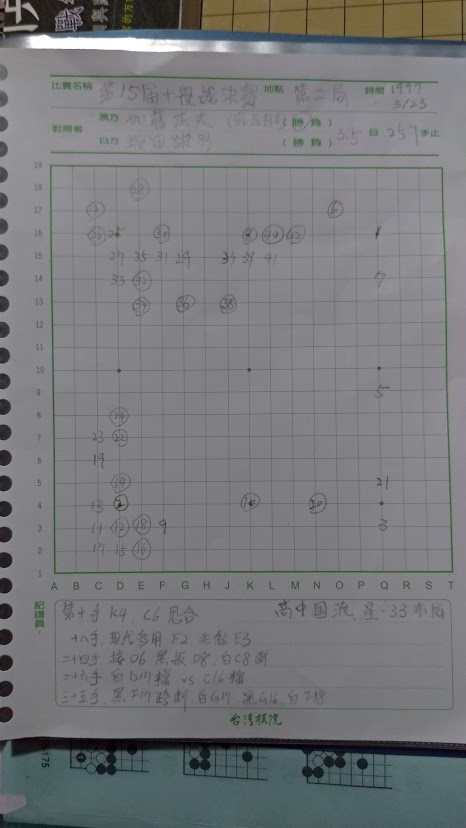 比賽名稱 第15屆十段戰決賽 地點 第二局 時間 1977
3/23
對局者 黑方 加藤正夫 (勝 負) 3.5 目 257 手止
白方 (勝 負)
19
18 28
17 2 6
16 26 25 30 8 40 42 1
15 27 35 31 29 37 39 41
14 33 32 7
13 34 36 38
12
11
10
9 5
8 24
7 23 22
6 19
5 21
4 13 10 20
3 11 12 18 9 3
2 17 15 16
1
A B C D E F G H J K L M N O P Q R S T
記譜員: 第十手 K4, C6 見合 高中國流, 星·33布局
十八手, 現代多用 F2 未粘 E3
二十四手 接D6 黑扳D8, 白C8斷
二十六手 白D17擋 vs C16擋
三十五手, 黑F17跨斷, 白G17, 黑G16, 白F18
台灣棋院
175